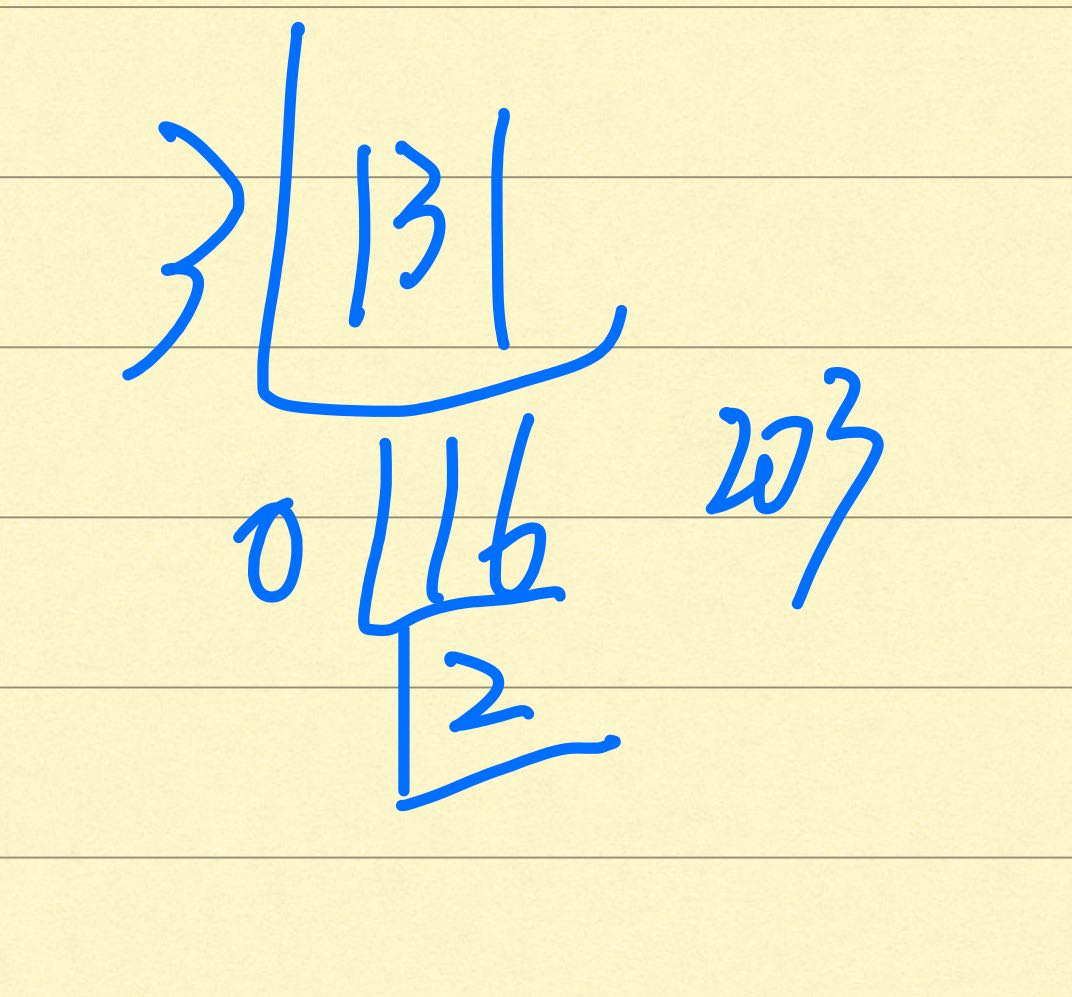 3 131
0 16 203
2